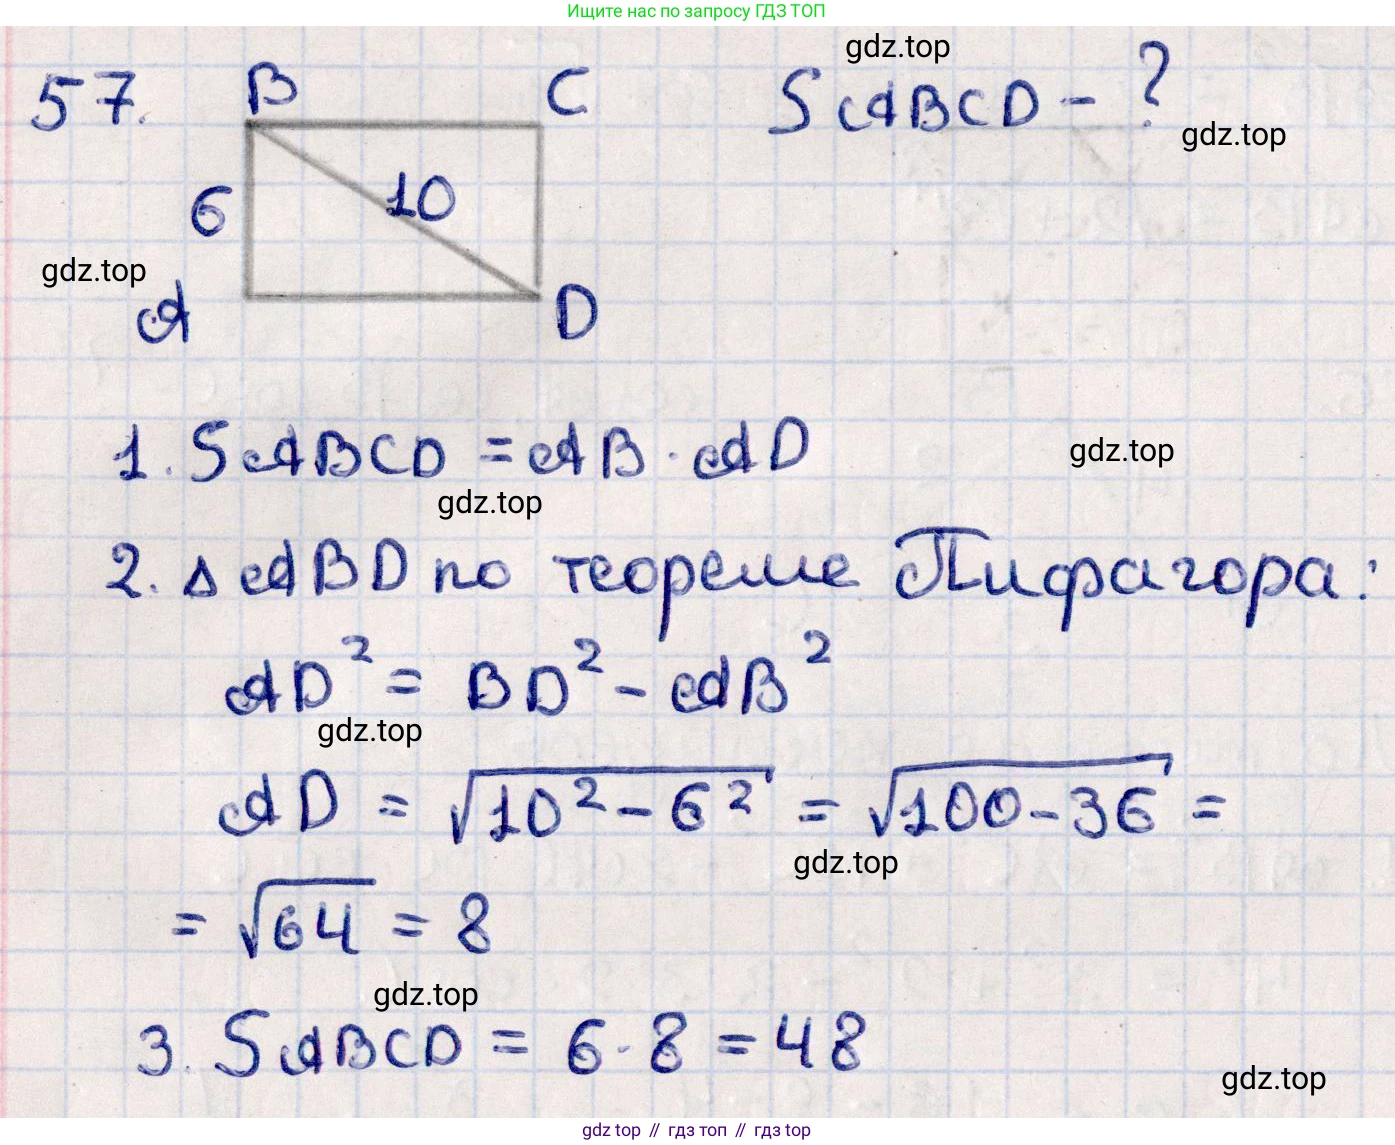 Ищите нас по запросу ГДЗ ТОП
gdz.top
57.
B
C
SABCD - ?
gdz.top
6
10
gdz.top
A
D
1. SABCD = AB · AD
gdz.top
gdz.top
2. Δ ABD по теореме Пифагора:
AD² = BD² - AB²
gdz.top
AD = √10² - 6² = √100 - 36 =
gdz.top
= √64 = 8
gdz.top
3. SABCD = 6 · 8 = 48
gdz.top
gdz top // гдз топ // гдз top